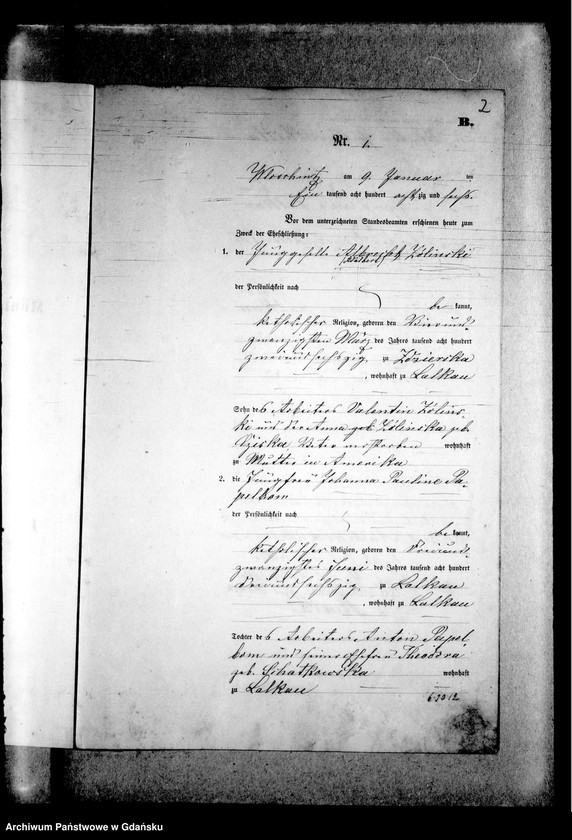 2
B.
Nr. 1.
Kloschnitz am 9. Januar ten
Ein tausend acht hundert achtzig und sechs.
Vor dem unterzeichneten Standesbeamten erschienen heute zum
Zweck der Eheschließung:
1. der Junggeselle Zölinski
der Persönlichkeit nach
be kannt,
katholischer Religion, geboren den Vierund-
zwanzigsten März des Jahres tausend acht hundert
zweiundsechszig, zu Zdzierska
, wohnhaft zu Lalkau
Sohn des Arbeiters Valentin Zölins-
ki und der Anna geb. Zölinska geb.
Vater verstorben wohnhaft
zu Mutter in Amerika
2. die Jungfrau Johanna Pauline Pa-
pelbom
der Persönlichkeit nach
be kannt,
katholischer Religion, geboren den Dreiund-
zwanzigsten Juni des Jahres tausend acht hundert
dreiundsechszig, zu Lalkau
, wohnhaft zu Lalkau
Tochter des Arbeiters Anton Papel
bom und seiner Ehefrau Theodora
geb. Schatkowska wohnhaft
zu Lalkau
Archiwum Państwowe w Gdańsku